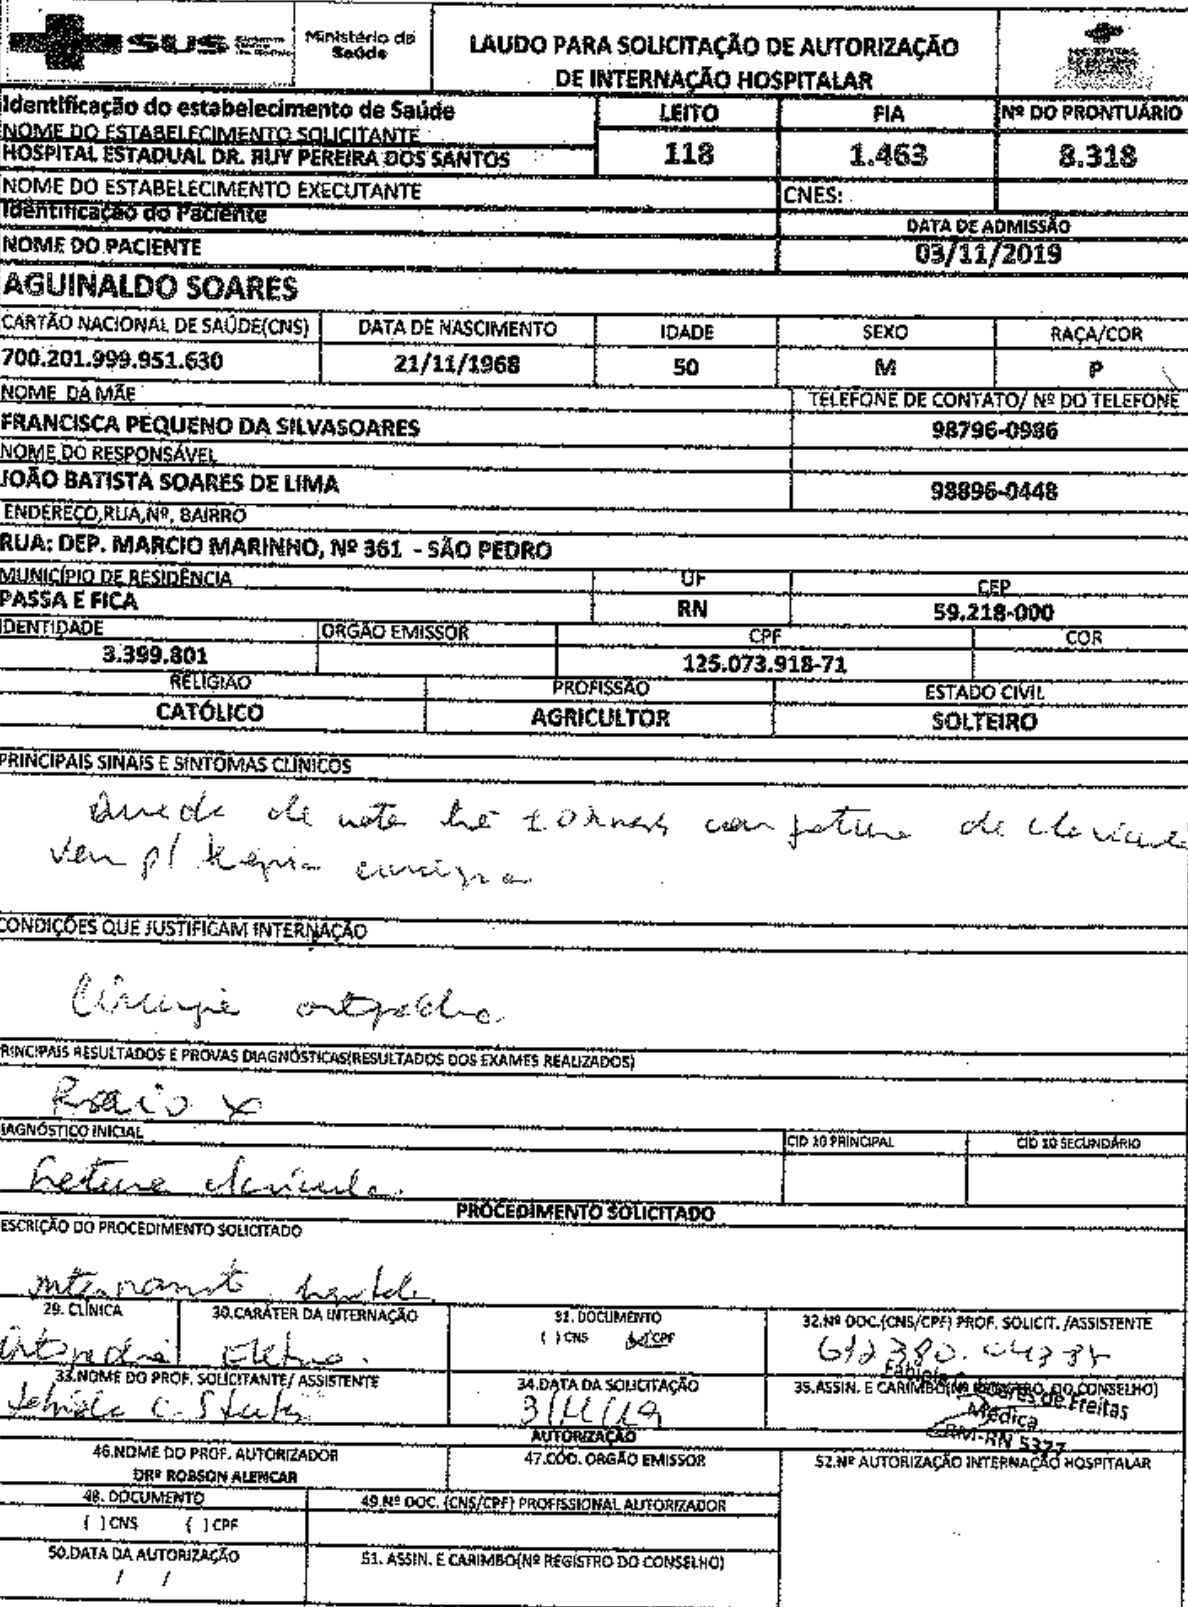 SUS
Ministério da Saúde
LAUDO PARA SOLICITAÇÃO DE AUTORIZAÇÃO
DE INTERNAÇÃO HOSPITALAR
Identificação do estabelecimento de Saúde
LEITO FIA Nº DO PRONTUÁRIO
NOME DO ESTABELECIMENTO SOLICITANTE
HOSPITAL ESTADUAL DR. RUY PEREIRA DOS SANTOS 118 1.463 8.318
NOME DO ESTABELECIMENTO EXECUTANTE CNES:
Identificação do Paciente DATA DE ADMISSÃO
NOME DO PACIENTE 03/11/2019
AGUINALDO SOARES
CARTÃO NACIONAL DE SAÚDE(CNS) DATA DE NASCIMENTO IDADE SEXO RAÇA/COR
700.201.999.951.630 21/11/1968 50 M P
NOME DA MÃE TELEFONE DE CONTATO/ Nº DO TELEFONE
FRANCISCA PEQUENO DA SILVASOARES 98796-0986
NOME DO RESPONSÁVEL
JOÃO BATISTA SOARES DE LIMA 98896-0448
ENDEREÇO,RUA,Nº, BAIRRO
RUA: DEP. MARCIO MARINHO, Nº 361 - SÃO PEDRO
MUNICÍPIO DE RESIDÊNCIA UF CEP
PASSA E FICA RN 59.218-000
IDENTIDADE ORGÃO EMISSOR CPF COR
3.399.801 125.073.918-71
RELIGIAO PROFISSÃO ESTADO CIVIL
CATÓLICO AGRICULTOR SOLTEIRO
PRINCIPAIS SINAIS E SINTOMAS CLÍNICOS
de moto há com fratura de clavicula
vem p/ cirurgia
CONDIÇÕES QUE JUSTIFICAM INTERNAÇÃO
Cirurgia ortopedica
RINCIPAIS RESULTADOS E PROVAS DIAGNÓSTICAS(RESULTADOS DOS EXAMES REALIZADOS)
Raio X
IAGNÓSTICO INICIAL CID 10 PRINCIPAL CID 10 SECUNDÁRIO
fratura clavicula.
PROCEDIMENTO SOLICITADO
ESCRIÇÃO DO PROCEDIMENTO SOLICITADO
29. CLÍNICA 30.CARÁTER DA INTERNAÇÃO 31. DOCUMENTO 32.Nº DOC.(CNS/CPF) PROF. SOLICIT. /ASSISTENTE
( ) CNS CPF
33.NOME DO PROF. SOLICITANTE/ ASSISTENTE 34.DATA DA SOLICITAÇÃO 35.ASSIN. E CARIMBO(Nº REGISTRO DO CONSELHO)
3/11/19
de Freitas
Médica
CRM-RN 5377
AUTORIZAÇÃO
46.NOME DO PROF. AUTORIZADOR 47.CÓD. ORGÃO EMISSOR 52.Nº AUTORIZAÇÃO INTERNAÇÃO HOSPITALAR
DRº ROBSON ALENCAR
48. DOCUMENTO 49.Nº DOC. (CNS/CPF) PROFISSIONAL AUTORIZADOR
( ) CNS ( ) CPF
50.DATA DA AUTORIZAÇÃO 51. ASSIN. E CARIMBO(Nº REGISTRO DO CONSELHO)
/ /